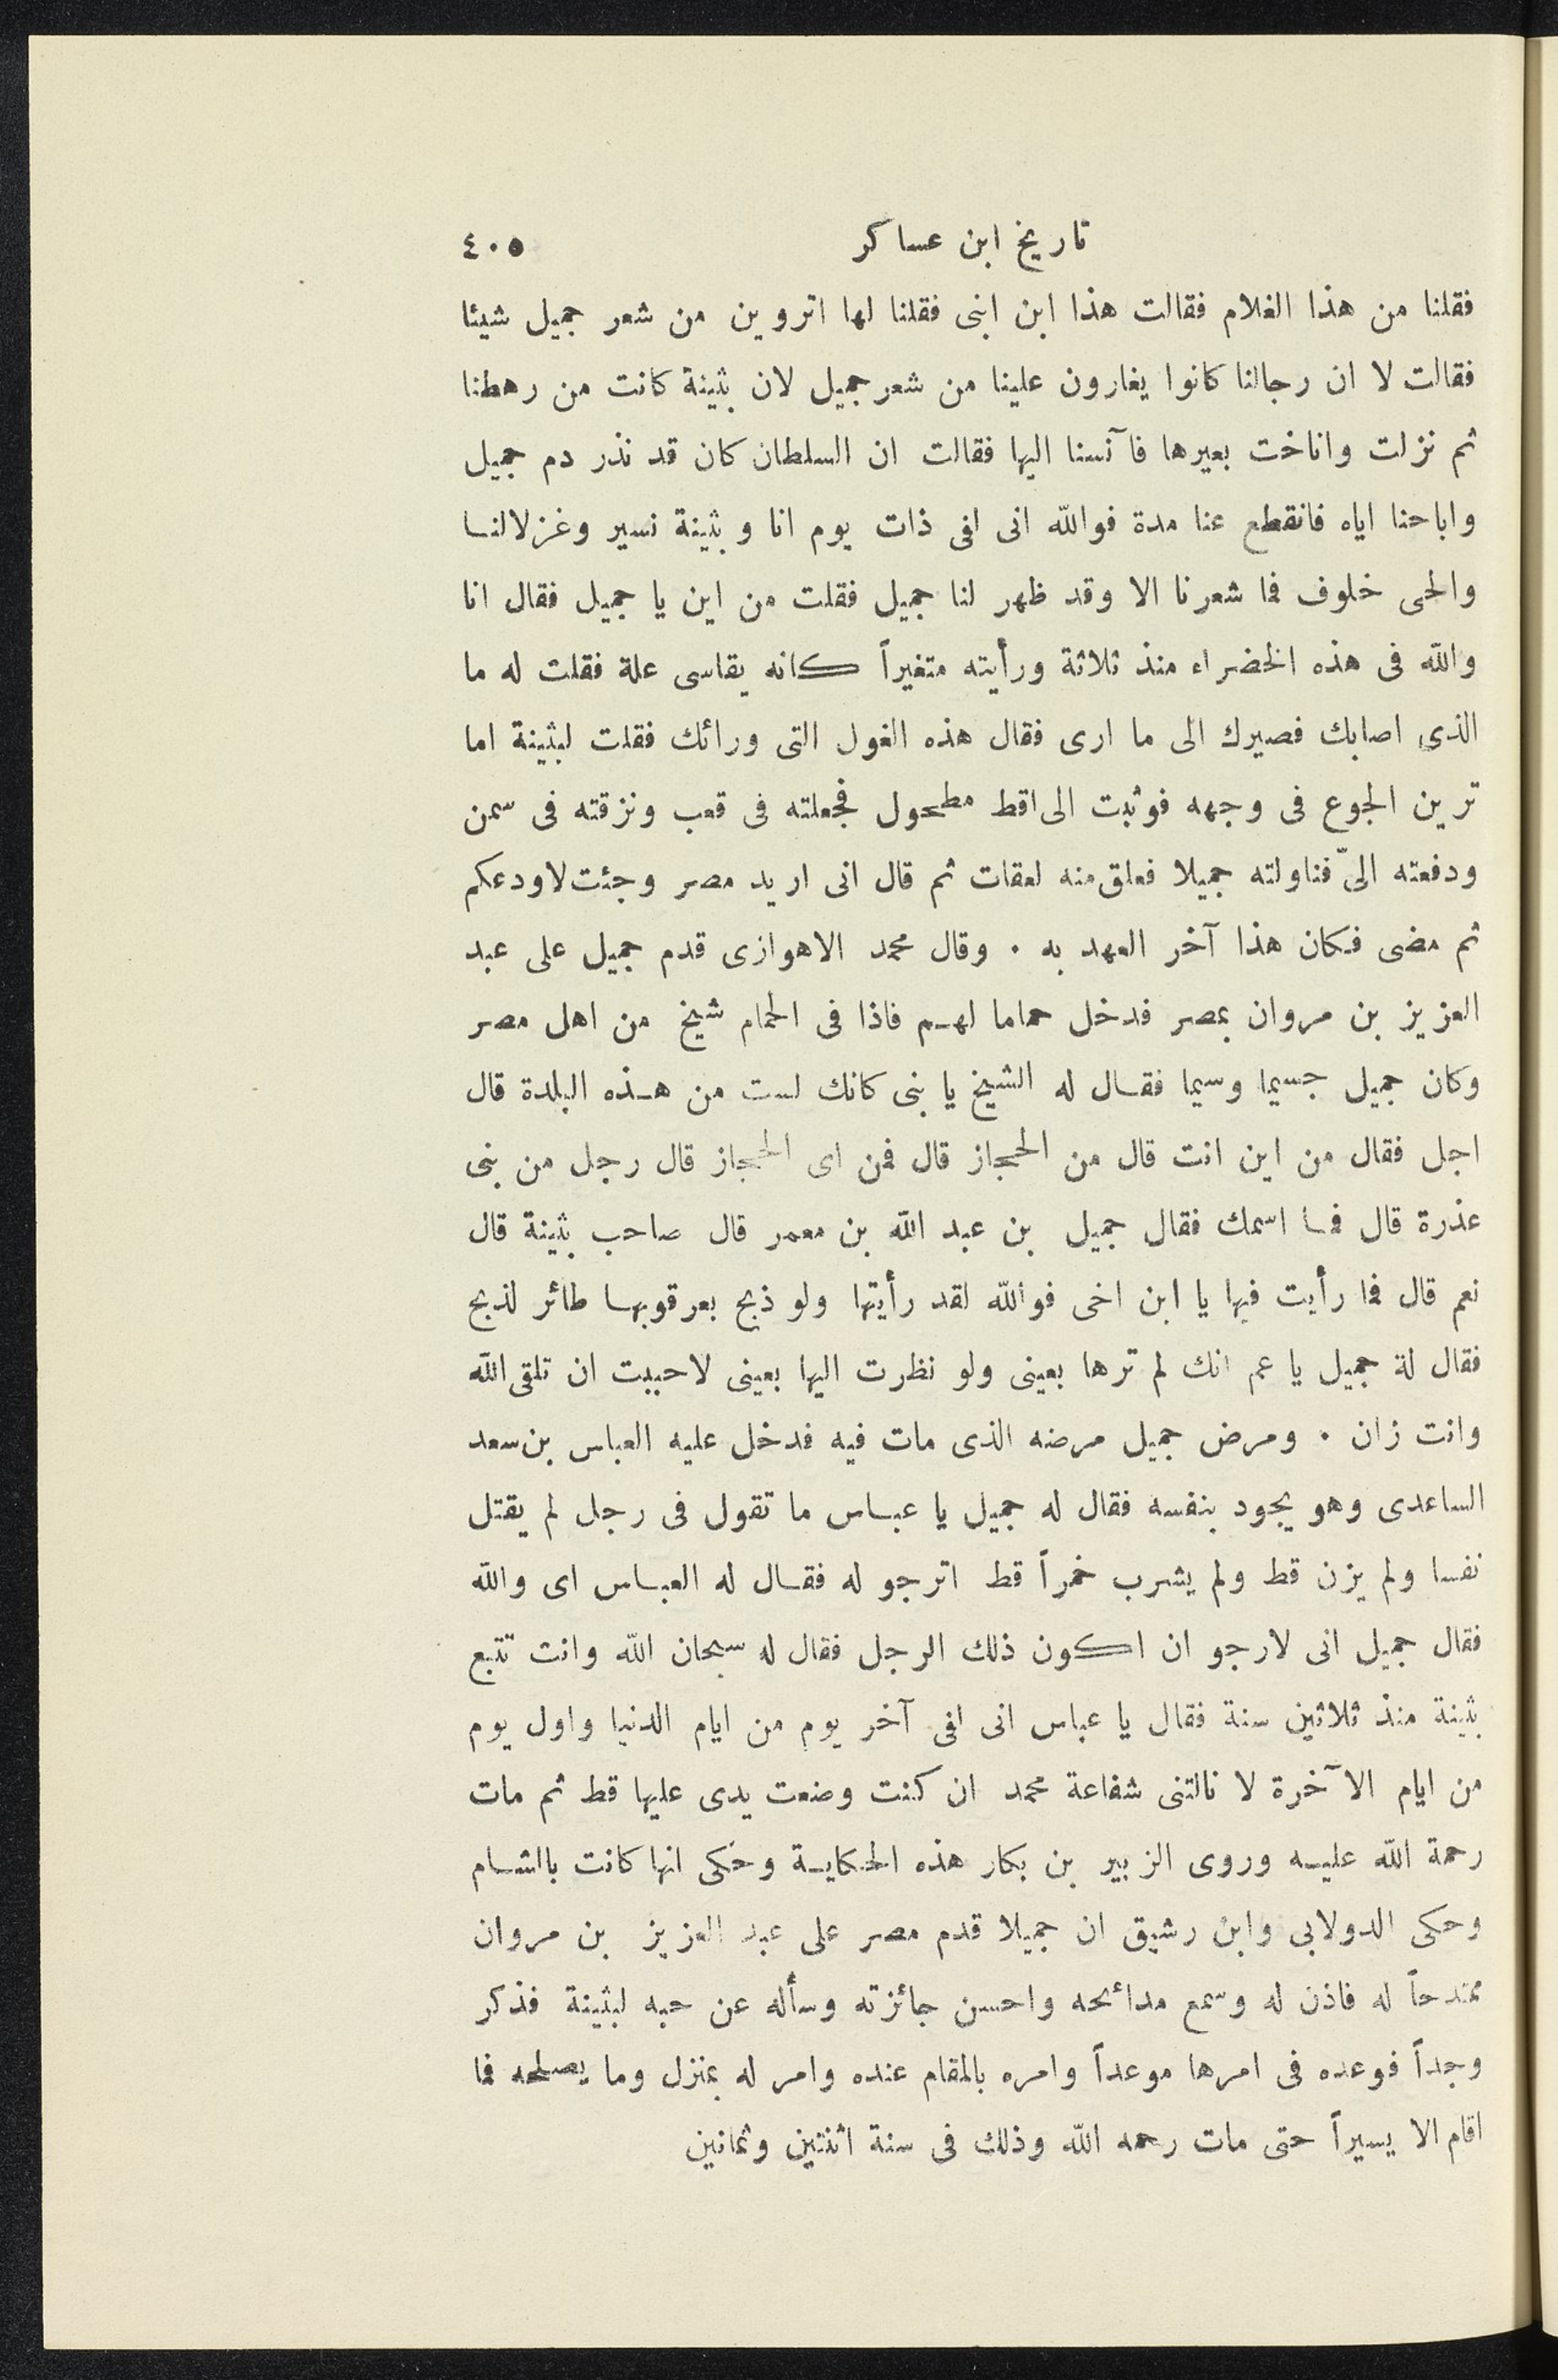 تاريخ ابن عساكر ٤٠٥
فقلنا من هذا الغلام فقالت هذا ابن ابنى فقلنا لها اتروين من شعر جميل شيئا
فقالت لا ان رجالنا كانوا يغارون علينا من شعر جميل لان بثينة كانت من رهطنا
ثم نزلت واناخت بعيرها فآنسنا اليها فقالت ان السلطان كان قد نذر دم جميل
واباحنا اياه فانقطع عنا مدة فوالله انى افى ذات يوم انا وبثينة نسير وغزلا لنا
والحى خلوف فما شعرنا الا وقد ظهر لنا جميل فقلت من اين يا جميل فقال انا
والله فى هذه الخضراء منذ ثلاثة ورأيته متغيراً كانه يقاسى علة فقلت له ما
الذى اصابك فصيرك الى ما ارى فقال هذه الغول التى ورائك فقلت لبثينة اما
ترين الجوع فى وجهه فوثبت الى اقط مطحول فجعلته فى قعب ونزقته فى سمن
ودفعته الىّ فناولته جميلا فعلق منه لعقات ثم قال انى اريد مصر وجئت لاودعكم
ثم مضى فكان هذا آخر العهد به . وقال محمد الاهوازى قدم جميل على عبد
العزيز بن مروان بمصر فدخل حماما لهم فاذا فى الحمام شيخ من اهل مصر
وكان جميل جسيما وسيما فقال له الشيخ يا بنى كانك لست من هذه البلدة قال
اجل فقال من اين انت قال من الحجاز قال فمن اى الحجاز قال رجل من بنى
عذرة قال فما اسمك فقال جميل بن عبد الله بن معمر قال صاحب بثينة قال
نعم قال فما رأيت فيها يا ابن اخى فوالله لقد رأيتها ولو ذبح بعرقوبها طائر لذبح
فقال لة جميل يا عم انك لم ترها بعينى ولو نظرت اليها بعينى لاحببت ان تلقى الله
وانت زان . ومرض جميل مرضه الذى مات فيه فدخل عليه العباس بن سعد
الساعدى وهو يجود بنفسه فقال له جميل يا عباس ما تقول فى رجل لم يقتل
نفسا ولم يزن قط ولم يشرب خمراً قط اترجو له فقال له العباس اى والله
فقال جميل انى لارجو ان اكون ذلك الرجل فقال له سبحان الله وانت تتبع
بثينة منذ ثلاثين سنة فقال يا عباس انى افى آخر يوم من ايام الدنيا واول يوم
من ايام الآخرة لا نالتنى شفاعة محمد ان كنت وضعت يدى عليها قط ثم مات
رحمة الله عليه وروى الزبير بن بكار هذه الحكاية وحكى انها كانت بالشام
وحكى الدولابى وابن رشيق ان جميلا قدم مصر على عبد العزيز بن مروان
ممتدحاً له فاذن له وسمع مدائحه واحسن جائزته وسأله عن حبه لبثينة فذكر
وجداً فوعده فى امرها موعداً وامره بالمقام عنده وامر له بمنزل وما يصلحه فما
اقام الا يسيراً حتى مات رحمه الله وذلك فى سنة اثنتين وثمانين